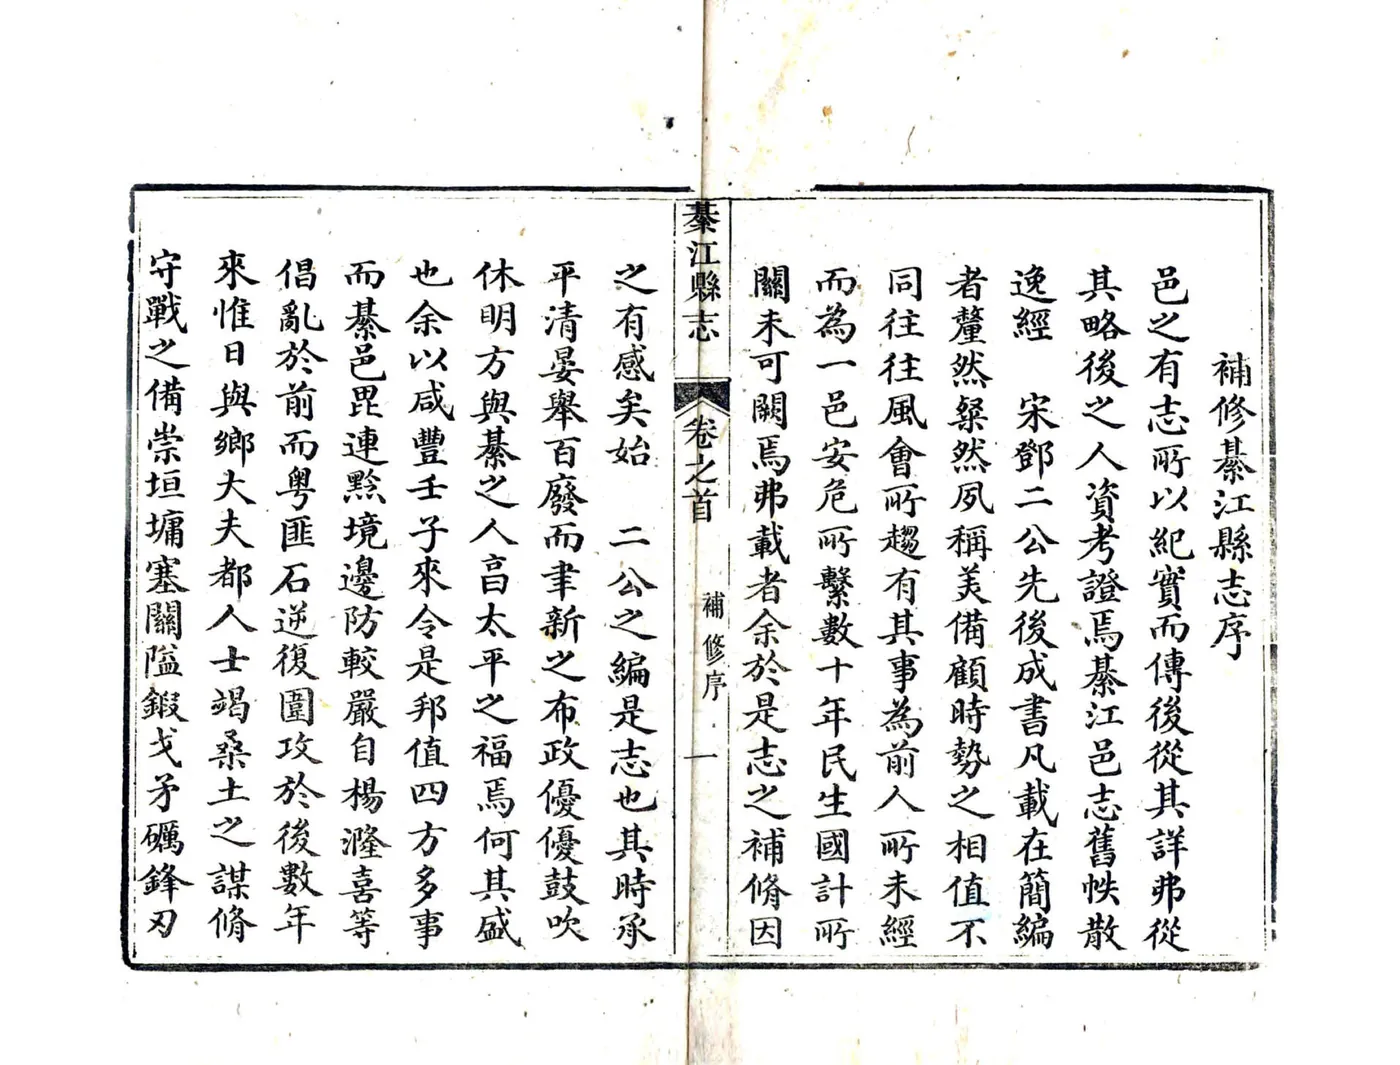 補修綦江縣志序
邑之有志所以紀實而傳後從其詳弗從
其略後之人資考證焉綦江邑志舊帙散
逸經　宋鄧二公先後成書凡載在簡編
者釐然粲然夙稱美備顧時勢之相值不
同往往風會所趨有其事為前人所未經
而為一邑安危所繫數十年民生國計所
關未可闕焉弗載者余於是志之補脩因
綦江縣志
卷之首
補修序
一
之有感矣始　二公之編是志也其時承
平清晏舉百廢而聿新之布政優優鼓吹
休明方與綦之人亯太平之福焉何其盛
也余以咸豐壬子來令是邦值四方多事
而綦邑毘連黔境邊防較嚴自楊漋喜等
倡亂於前而粵匪石逆復圍攻於後數年
來惟日與鄉大夫都人士竭桑土之謀脩
守戰之備崇垣墉塞關隘鍛戈矛礪鋒刃